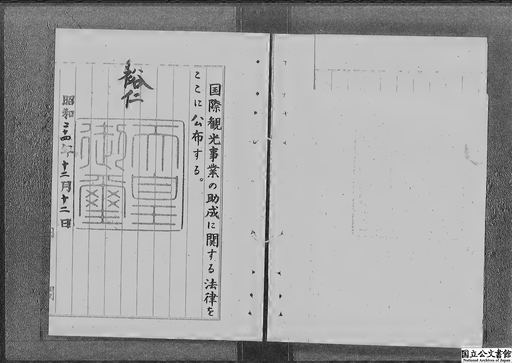 国際観光事業の助成に関する法律を
ここに公布する。
裕仁
天皇
御璽
昭和二十四年十二月十二日
国立公文書館
National Archives of Japan